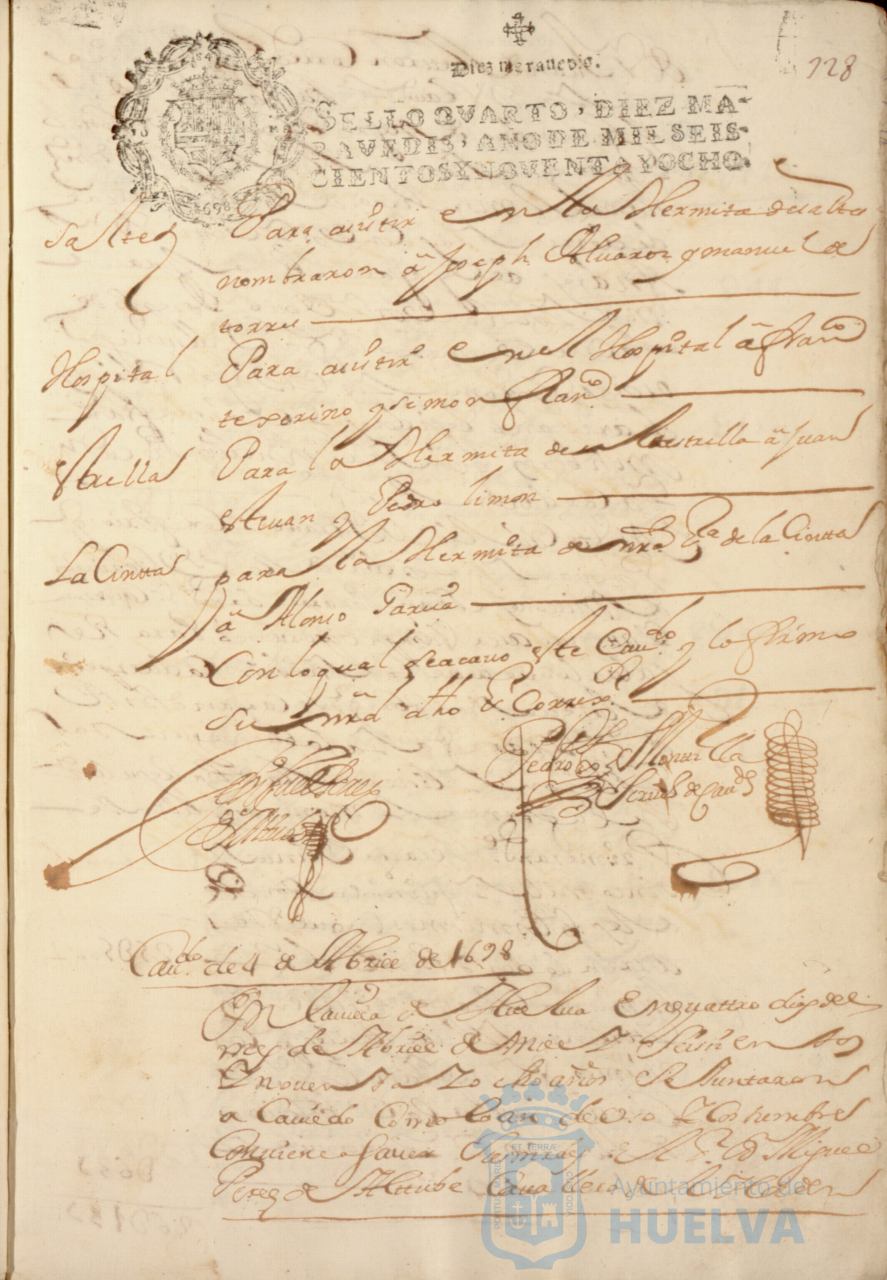 Diez maravedis.
128
SELLO QVARTO, DIEZ MA-
RAVEDIS, AÑO DE MIL SEIS-
CIENTOS Y NOVENTA Y OCHO.
1698
Saltes
Para asistir en la Hermita de Saltes
nombraron a Joseph Alvarez y manuel de
torres
Hospital
Para asistir en el Hospital a Franco
texerino y simon Franco
Strella
Para la Hermita de la estrella a Juan
estevan y Pedro limon
La Cintta
para la Hermita de nra Sa de la Cintta
a Alonso Garcia
Con lo qual se acavo este Cavdo y lo firmo
su mrd dho Sr Correxr
Pedro Montilla
Scrivo de Cavdo
Cavdo de 4 de Abril de 1698
En la villa de Huelva En quattro dias del
mes de Abril de Mil Y seisientos
E noventa Y ocho años se Juntaron
a Cavildo Como lo an de Uso Y Costumbre
Conviene a saver Su md el Sr D. Miguel
Perez de Alttube Cavallero del orden
Ayuntamiento de
HUELVA